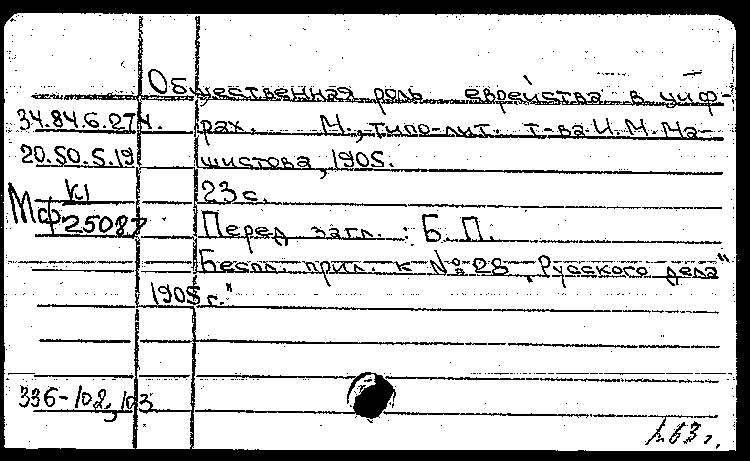 Общественная роль еврейства в циф-
34.84.6.274. рах. М., типо-лит. т-ва И. М. Ма-
20.50.5.19 шистова, 1905.
К1 23 с.
Мф 25087 Перед загл.: Б. П.
Беспл. прил. к № 28 „Русского дела"
1905 г."
336-102,103
63 г.